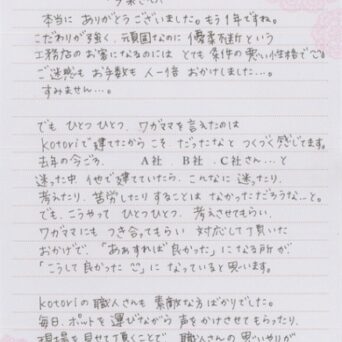 本当に ありがとうございました。もう1年ですね。
こだわりが強く、頑固なのに 優柔不断という
工務店のお客になるのには とても 条件の 悪い性格で
ご迷惑も お手数も 人一倍 おかけしました…。
すみません…。
でも ひとつひとつ、ワガママを 言えたのは
kotoriで建てたからこそ、だったなと つくづく感じてます。
去年の今ごろ、 A社、B社、C社さん…と
迷った中、他で建てていたら、こんなに 迷ったり、
考えたり、苦労したりすることは なかっただろうな…と。
でも、こうやって ひとつひとつ、考えさせてもらい、
ワガママにも つき合ってもらい 対応して頂いた
おかげで、「ああすれば良かった」になる所が、
「こうして良かった」に なっていると思います。
kotoriの 職人さんも 素敵な方ばかりでした。
毎日、ポットを 運びながら 声をかけさせてもらったり、
現場を 見せて頂くことで、職人さんの 思いやりが